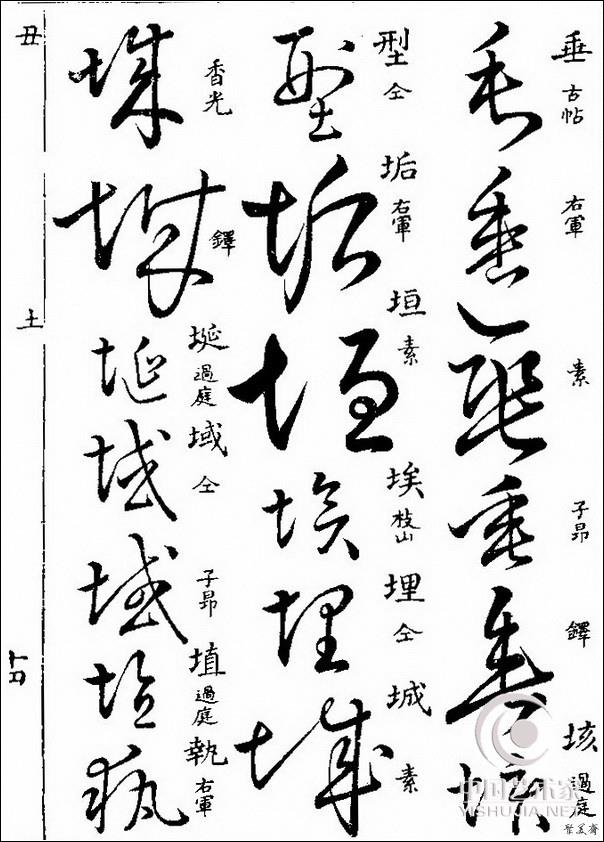 垂 古帖
垂 右軍
垂 素
垂 子昂
垂 鐸
垓 過庭
型 仝
垢 右軍
垣 素
埃 枝山
埋 仝
城 素
城 香光
城 鐸
埏 過庭
域 仝
域 子昂
埴 過庭
執 右軍
丑
土
中国艺术家
YISHUJIA.COM
聚美齋